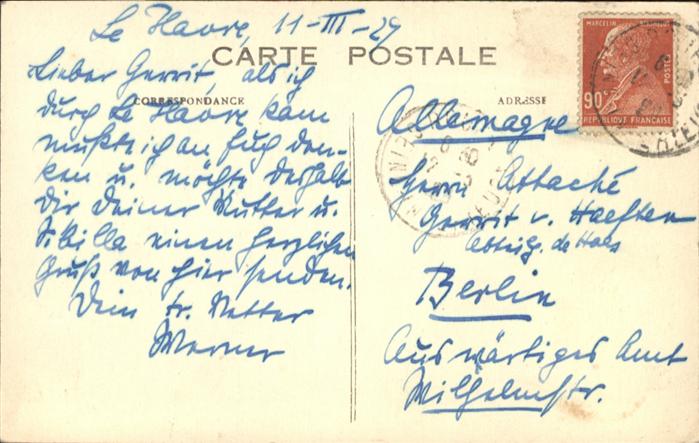 Le Havre, 11-III-29
CARTE POSTALE
CORRESPONDANCE
ADRESSE
Lieber Gerrit, als ich
durch Le Havre kam
mußte ich an Euch den-
ken u. möchte deshalb
Dir Deiner Mutter u.
Sibilla einen herzlichen
Gruß von hier senden.
Dein tr. Vetter
Werner
MARCELIN
POSTES
90c
REPUBLIQUE FRANÇAISE
Allemagne
Herrn Attaché
Gerrit v. Haeften
Berlin
Auswärtiges Amt
Wilhelmstr.